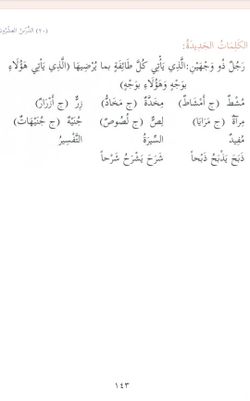 (٢٠) الدَّرْسُ العِشْرُونَ
الكَلِمَاتُ الجَدِيدَةُ:
رَجُلٌ ذُو وَجْهَيْنِ: الَّذِي يَأْتِي كُلَّ طَائِفَةٍ بما يُرْضِيهَا (الَّذِي يَأْتِي هَؤُلَاءِ
بوَجْهٍ وَهَؤُلَاءِ بِوَجْهٍ)
مُشْطٌ (ج أَمْشَاطٌ) مِخَدَّةٌ (ج مَخَادُّ) زِرٌّ (ج أَزْرَارٌ)
مِرآةٌ (ج مَرَايَا) لِصٌّ (ج لُصُوصٌ) جُنَيْهٌ (ج جُنَيْهَاتٌ)
مُفِيدٌ السِّيرَةُ التَّفْسِيرُ
ذَبَحَ يَذْبَحُ ذَبْحاً شَرَحَ يَشْرَحُ شَرْحاً
١٤٣